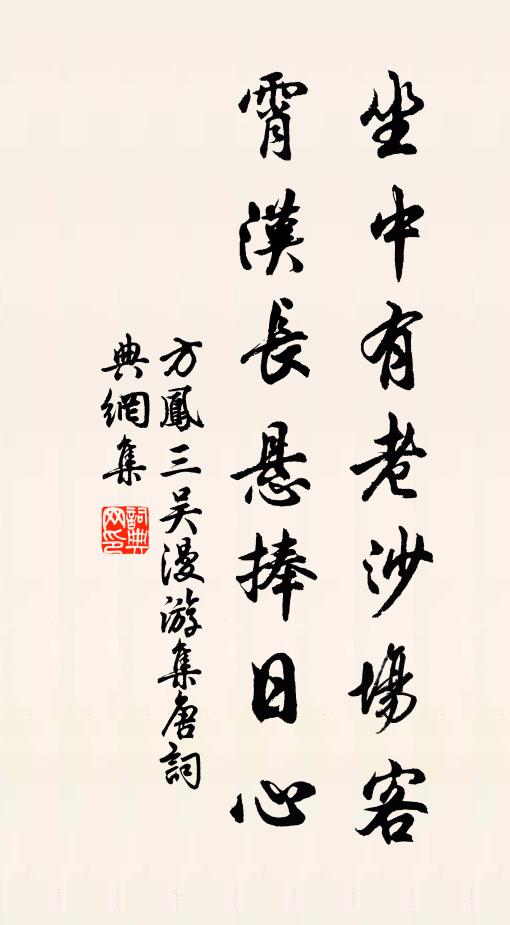 坐中有老沙場客
霄漢長悬捧日心
方鳳三吴漫游集唐詞
典網集
詞典
网印